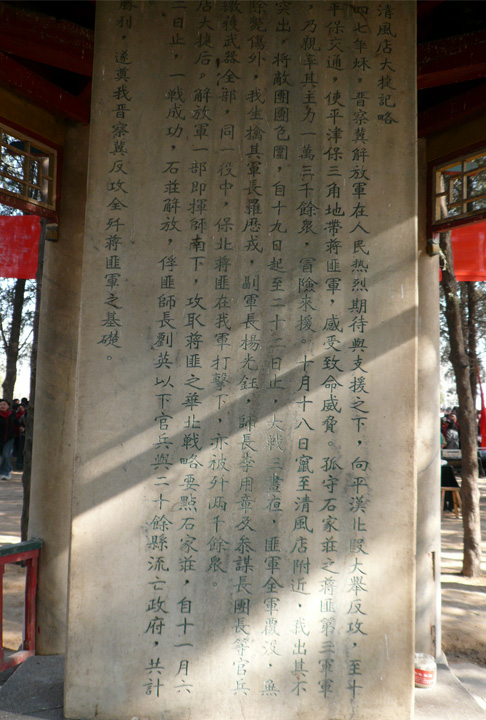 清風店大捷記略
四七年秌，晋察冀解放軍在人民热烈期待與支援之下，向平漢北段大舉反攻，至十
平保交通，使平津保三角地帶蒋匪軍，感受致命威脅。孤守石家莊之蒋匪第三軍軍
，乃親率其主力一萬三千餘衆，冒險來援。十月十八日竄至清風店附近，我出其不
突出，將敵團團包圍，自十九日起至二十二日止，大戰三晝夜，匪軍全軍覆没，無
除斃傷外，我生擒其軍長羅歷戎，副軍長楊光鈺，師長李用章及參謀長團長等官兵
繳獲武器全部，同一役中，保北蒋匪在我軍打擊下，亦被歼两千餘衆。
店大捷后，解放軍一部即揮師南下，攻取蒋匪之華北戰略要點石家莊，自十一月六
二日止，一戰成功，石莊解放，俘匪師長劉英以下官兵與二十餘縣流亡政府，共計
勝利，遂奠我晋察冀反攻全歼蒋匪軍之基礎。